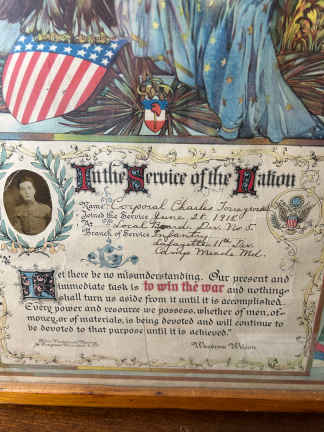 In the Service of the Nation
Name Corporal Charles
Joined the Service June 28. 1918
At Local Board, Div. No 5.
Branch of Service Infantry
Lafayette 11th Div.
Camp Meade Md.
Let there be no misunderstanding. Our present and
immediate task is to win the war and nothing
shall turn us aside from it until it is accomplished.
Every power and resource we possess, whether of men, of
money, or of materials, is being devoted and will continue to
be devoted to that purpose until it is achieved."
Woodrow Wilson